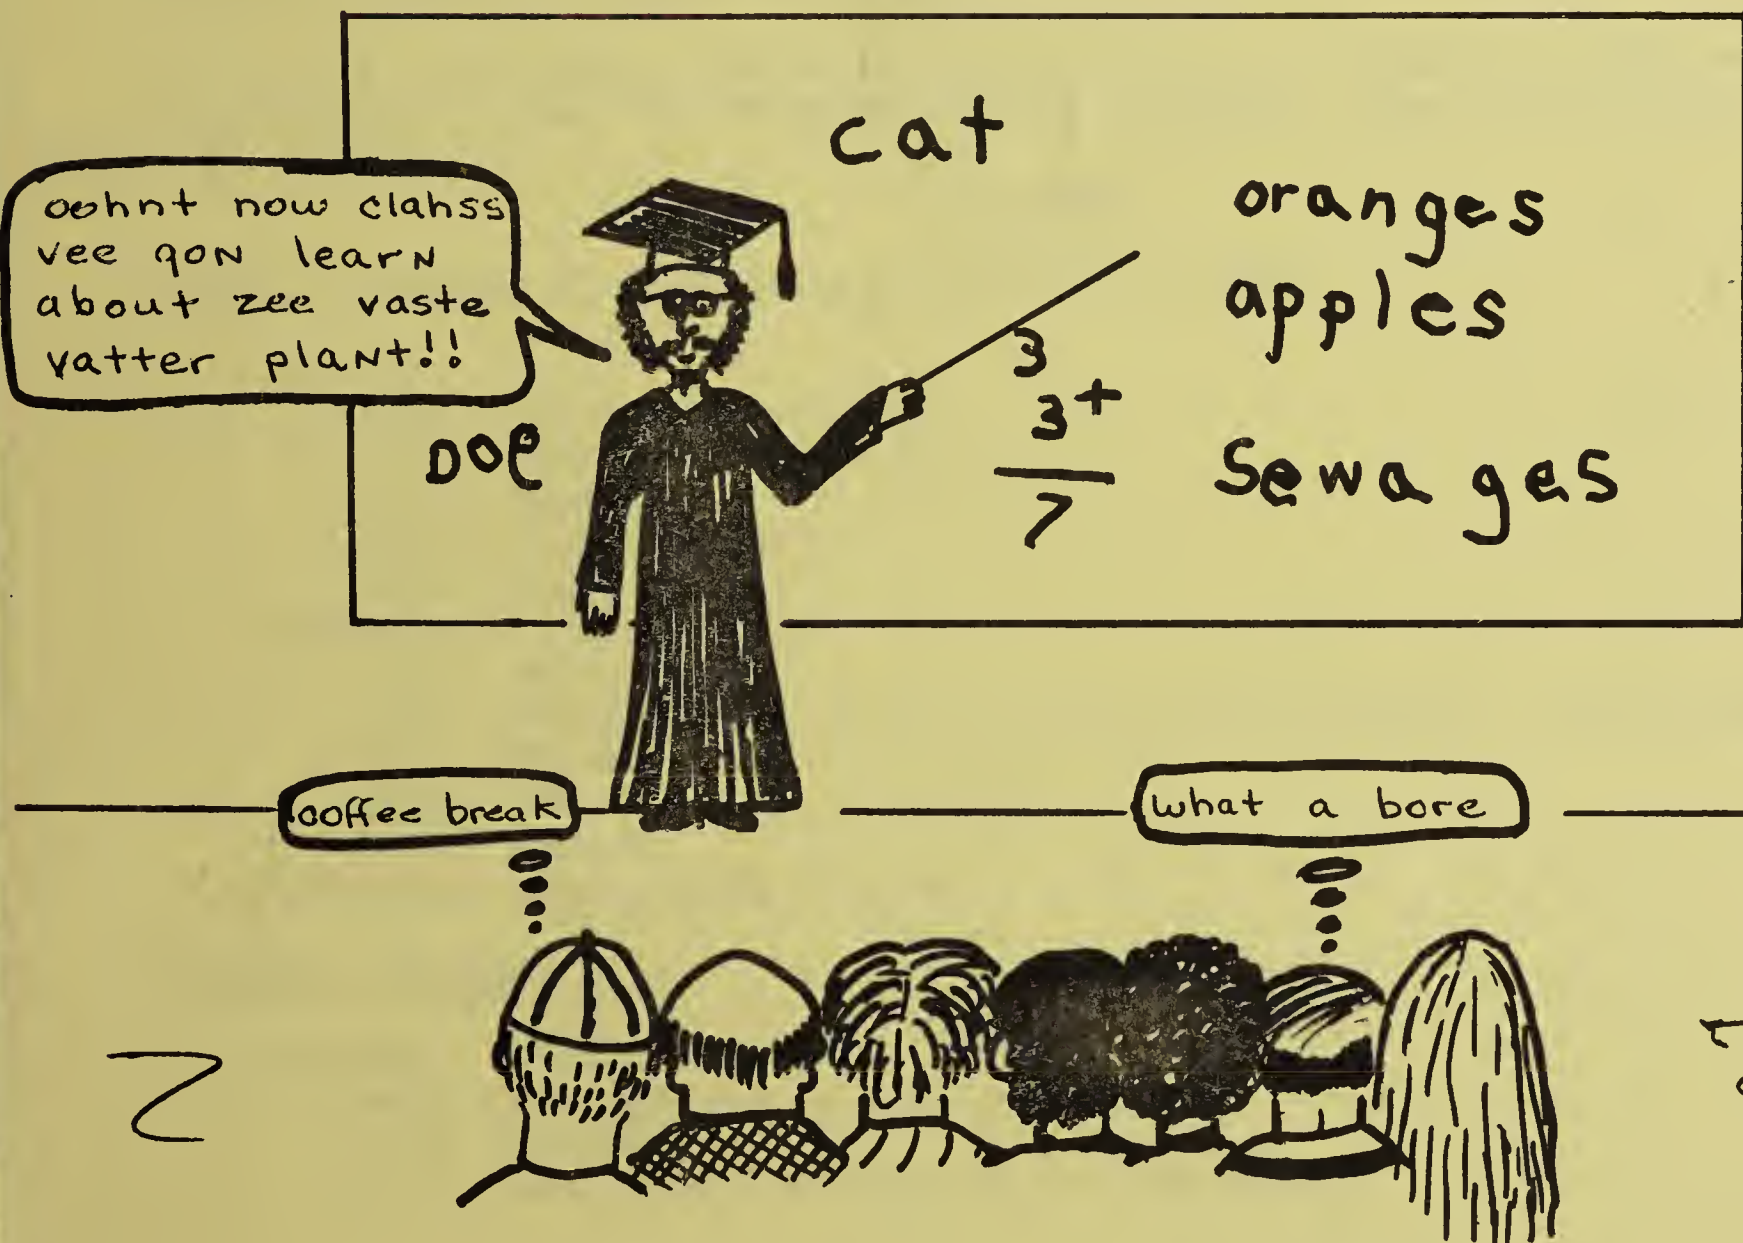 cat
oohnt now clahss
vee gon learn
about zee vaste
vatter plant!!
oranges
apples
3
3+
7
DOE
Sewa ges
coffee break
what a bore
Z